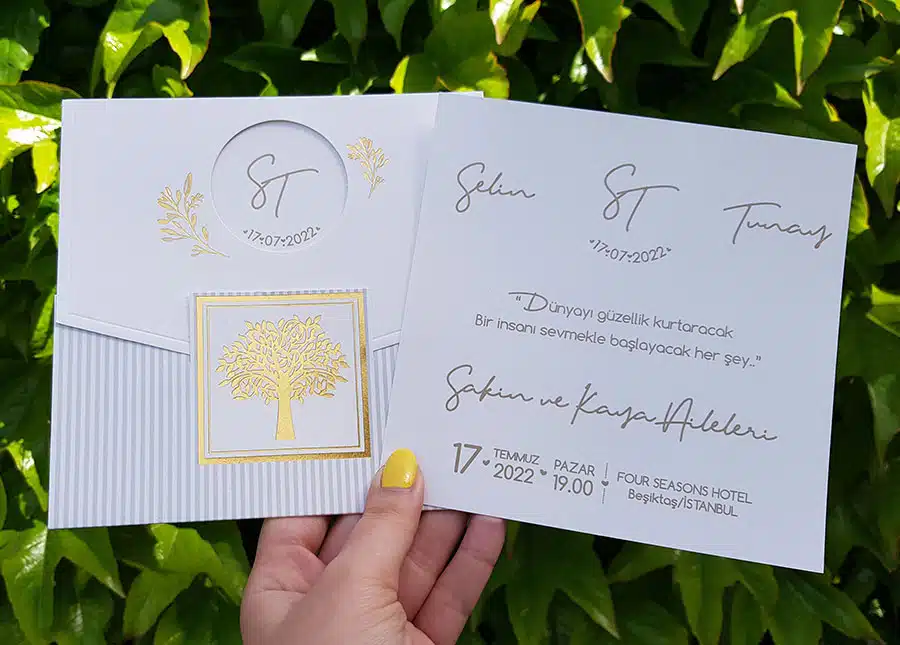 ST
17.07.2022
Selin
ST
Tunay
17.07.2022
“Dünyayı güzellik kurtaracak
Bir insanı sevmekle başlayacak her şey..”
Sakin ve Kaya Aileleri
17 TEMMUZ 2022 PAZAR 19.00
FOUR SEASONS HOTEL
Beşiktaş/İSTANBUL